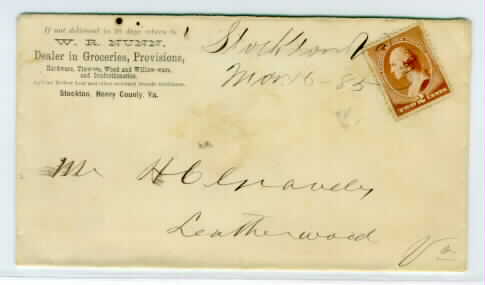 If not delivered in 10 days return to
W. R. NUNN,
Dealer in Groceries, Provisions,
Hardware, Tinware, Wood and Willow-ware,
and Confectioneries.
Stockton, Henry County, Va.
Stockton Va
Mar 5 - 85
2 CENTS
Mr H C Gravely
Leatherwood
Va